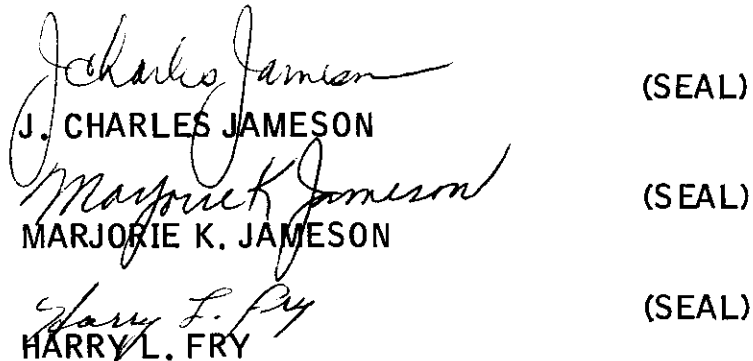 J Charles Jameson (SEAL)
J. CHARLES JAMESON
Marjorie K Jameson (SEAL)
MARJORIE K. JAMESON
Harry L. Fry (SEAL)
HARRY L. FRY